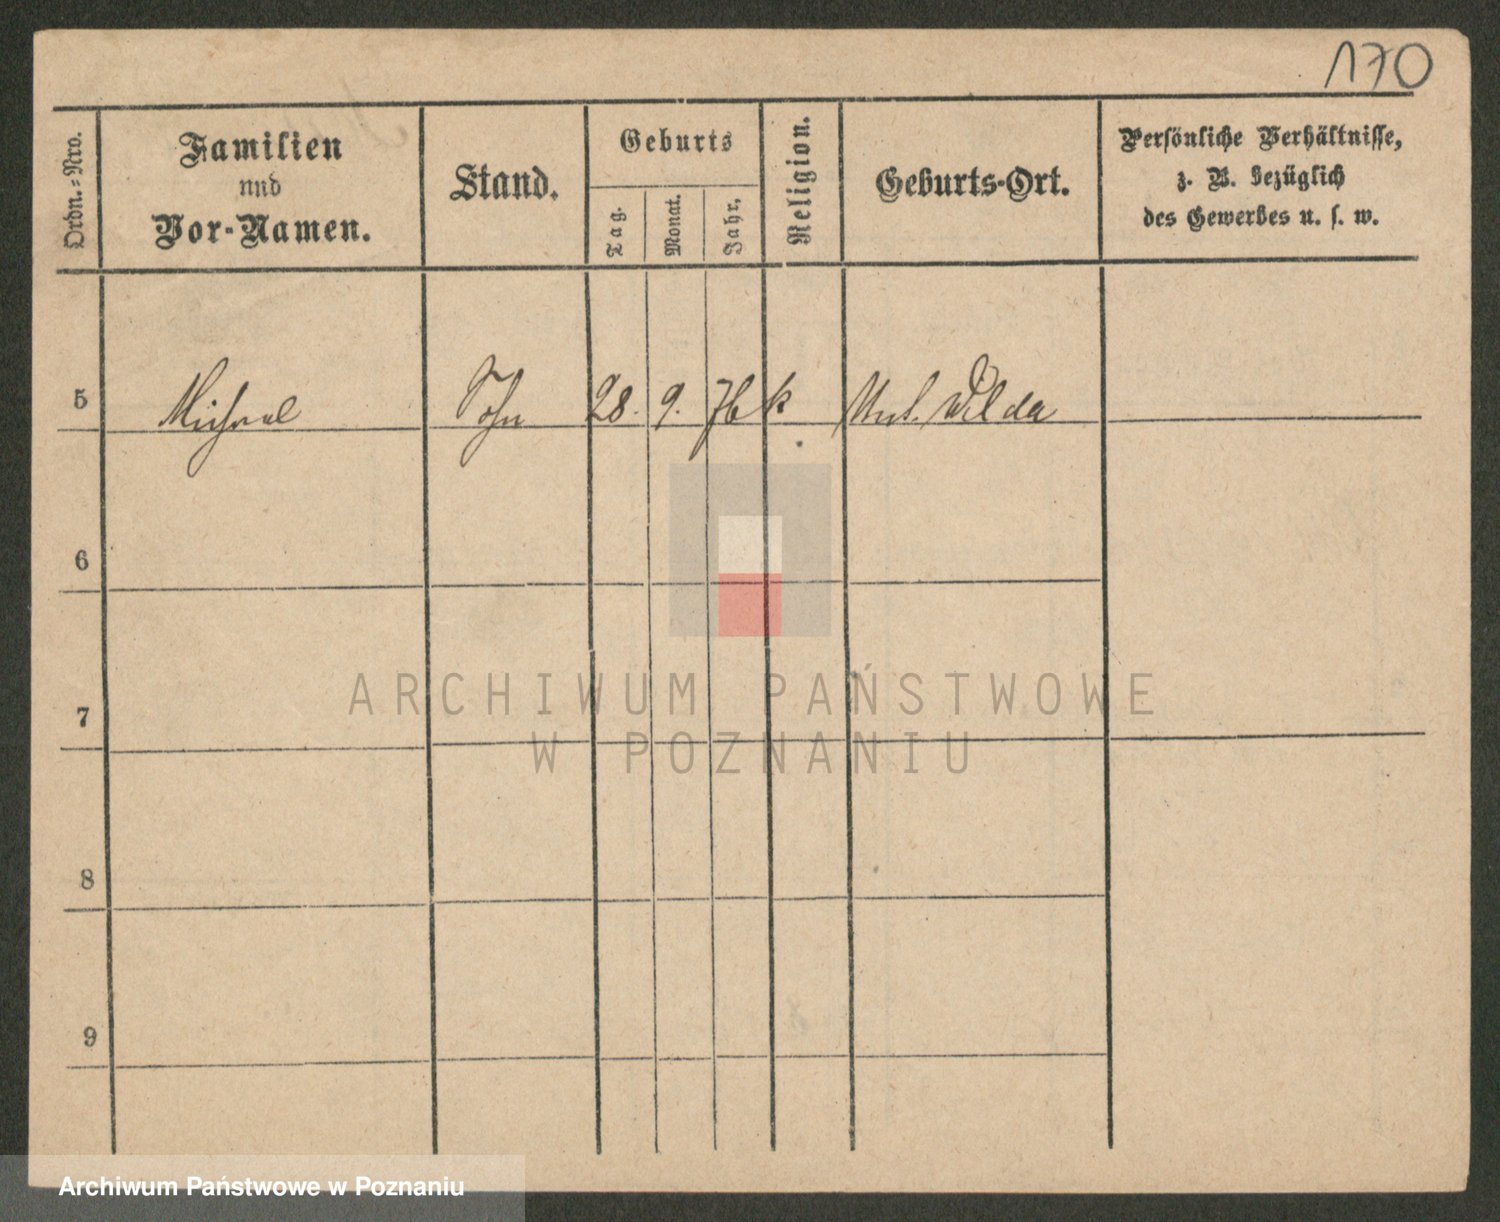 170
Ordn.-Nro.
Familien
und
Vor-Namen.
Stand.
Geburts
Tag.
Monat.
Jahr.
Religion.
Geburts-Ort.
Persönliche Verhältnisse,
z. B. bezüglich
des Gewerbes u. s. w.
5 Michael Sohn 28. 9. 76 k Unt. Wilda
6
7
8
9
ARCHIWUM PAŃSTWOWE
W POZNANIU
Archiwum Państwowe w Poznaniu